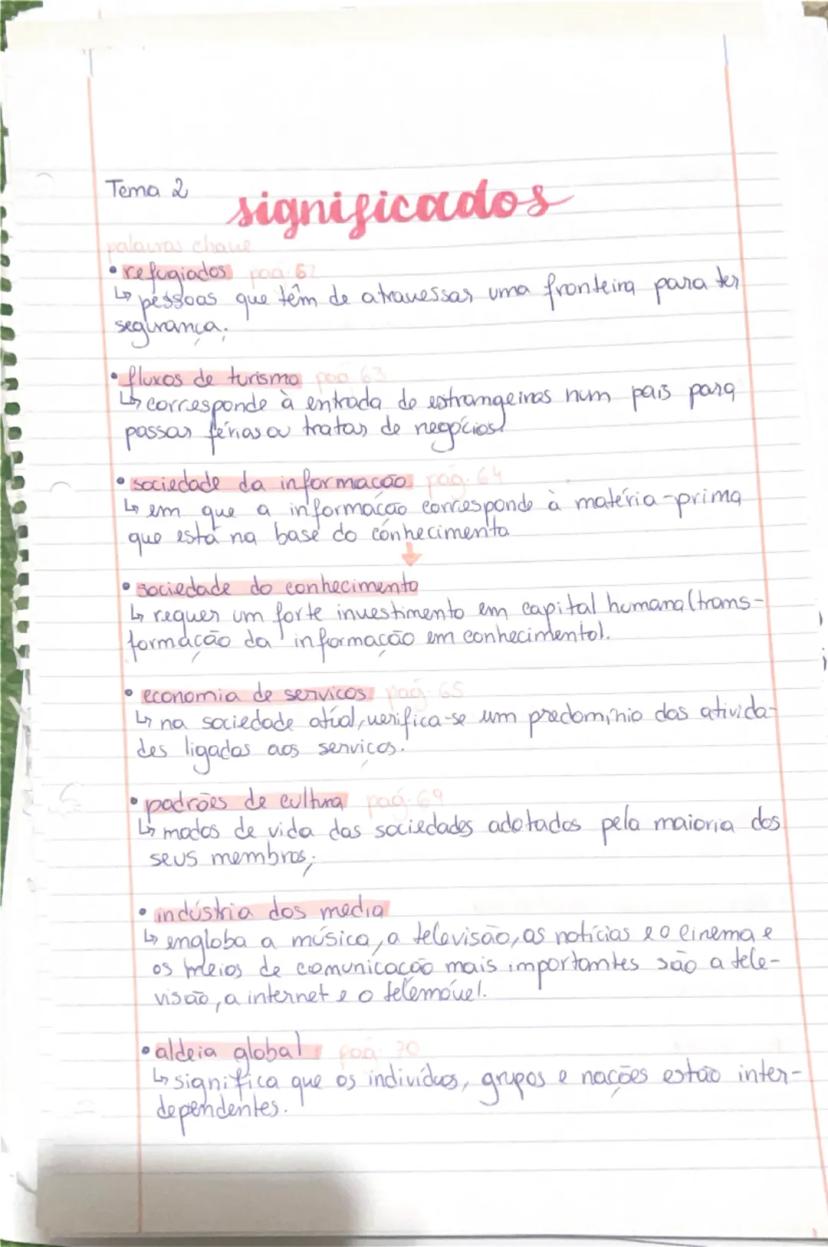 Tema 2
significados
palavras chave
• refugiados pág. 62
↳ pessoas que têm de atravessar uma fronteira para ter
segurança.
• fluxos de turismo pág. 63
↳ corresponde à entrada de estrangeiros num país para
passar férias ou tratar de negócios.
• sociedade da informação pág. 64
↳ em que a informação corresponde à matéria-prima
que está na base do conhecimento
↓
• sociedade do conhecimento
↳ requer um forte investimento em capital humano (trans-
formação da informação em conhecimento).
• economia de serviços pág. 65
↳ na sociedade atual, verifica-se um predomínio das ativida-
des ligadas aos serviços.
• padrões de cultura pág. 69
↳ modos de vida das sociedades adotados pela maioria dos
seus membros;
• indústria dos media
↳ engloba a música, a televisão, as notícias e o cinema e
os meios de comunicação mais importantes são a tele-
visão, a internet e o telemóvel.
• aldeia global pág. 70
↳ significa que os indivíduos, grupos e nações estão inter-
dependentes.